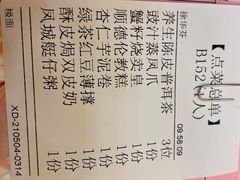 【点菜总单】
B152
徐步芬 09:58:09
养生陈皮普洱茶 3位
豉汁蒸凤爪 1份
蟹籽烧卖皇 1份
顺德伦教糕 1份
杏仁芋泥卷 1份
绿茶红豆薄撑 1份
酥皮焗双皮奶 1份
凤城艇仔粥 1份
楼面 XD-210504-0314